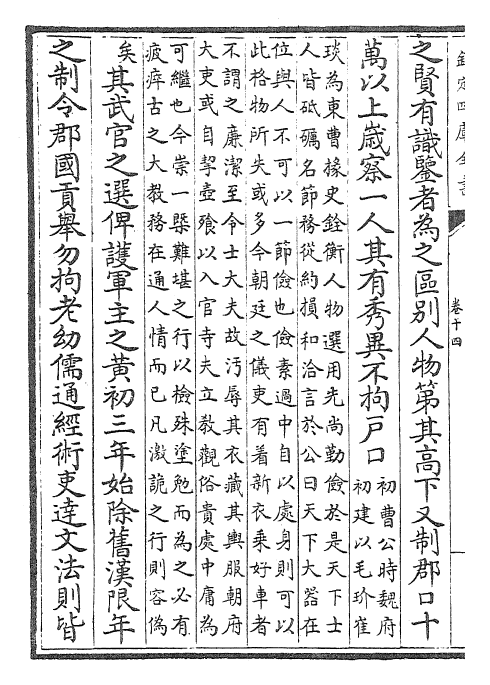 欽定四庫全書
卷十四
之賢有識鑒者為之區别人物第其高下又制郡口十
萬以上歲察一人其有秀異不拘戶口
初曹公時魏府
初建以毛玠崔
琰為東曹掾史銓衡人物選用先尚勤儉於是天下士
人皆砥礪名節務從約損和洽言於公曰天下大器在
位與人不可以一節儉也儉素過中自以處身則可以
此格物所失或多今朝廷之儀吏有着新衣乘好車者
不謂之廉潔至令士大夫故汚辱其衣藏其輿服朝府
大吏或自挈壺飱以入官寺夫立教觀俗貴處中庸為
可繼也今崇一槩難堪之行以檢殊塗勉而為之必有
疲瘁古之大教務在通人情而已凡激詭之行則容偽
矣其武官之選俾護軍主之黄初三年始除舊漢限年
之制令郡國貢舉勿拘老幼儒通經術吏達文法則皆